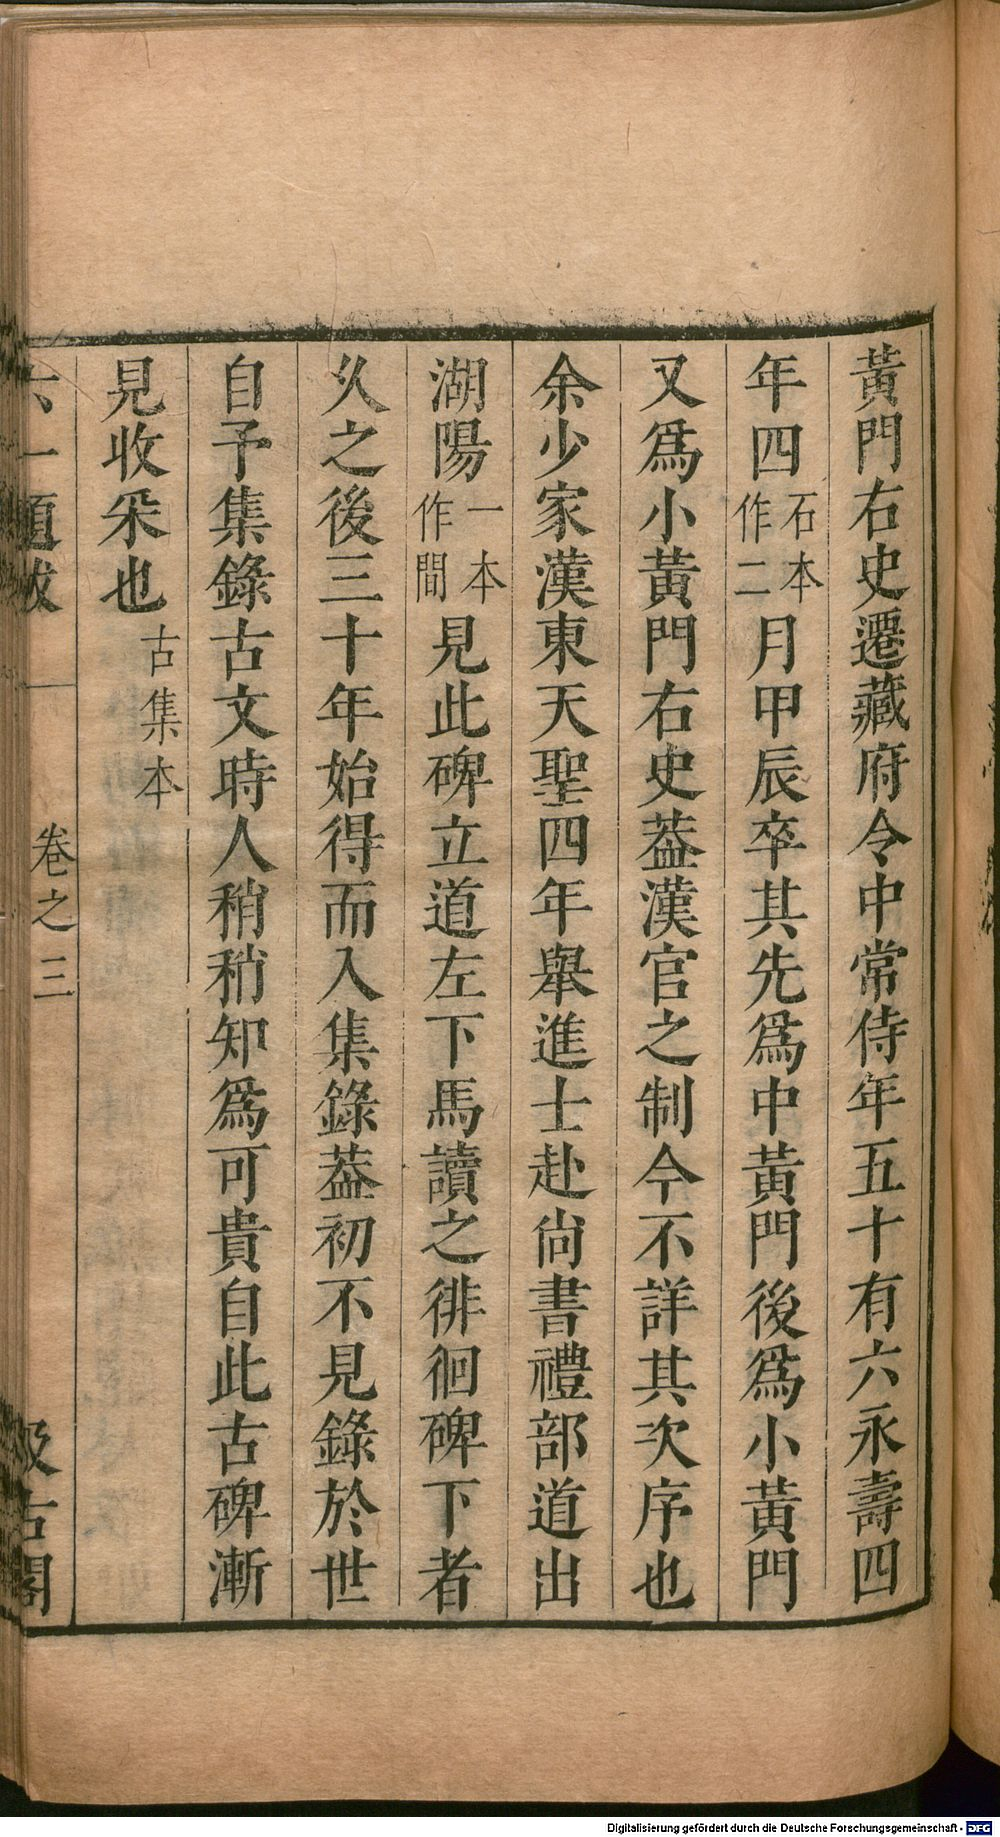 黃門右史遷藏府令中常侍年五十有六永壽四
年四石本作二月甲辰卒其先爲中黃門後爲小黃門
又爲小黃門右史葢漢官之制今不詳其次序也
余少家漢東天聖四年舉進士赴尙書禮部道出
湖陽一本作間見此碑立道左下馬讀之徘徊碑下者
久之後三十年始得而入集錄葢初不見錄於世
自予集錄古文時人稍稍知爲可貴自此古碑漸
見收采也古集本
六一題跋
卷之三
汲古閣
Digitalisierung gefördert durch die Deutsche Forschungsgemeinschaft - DFG